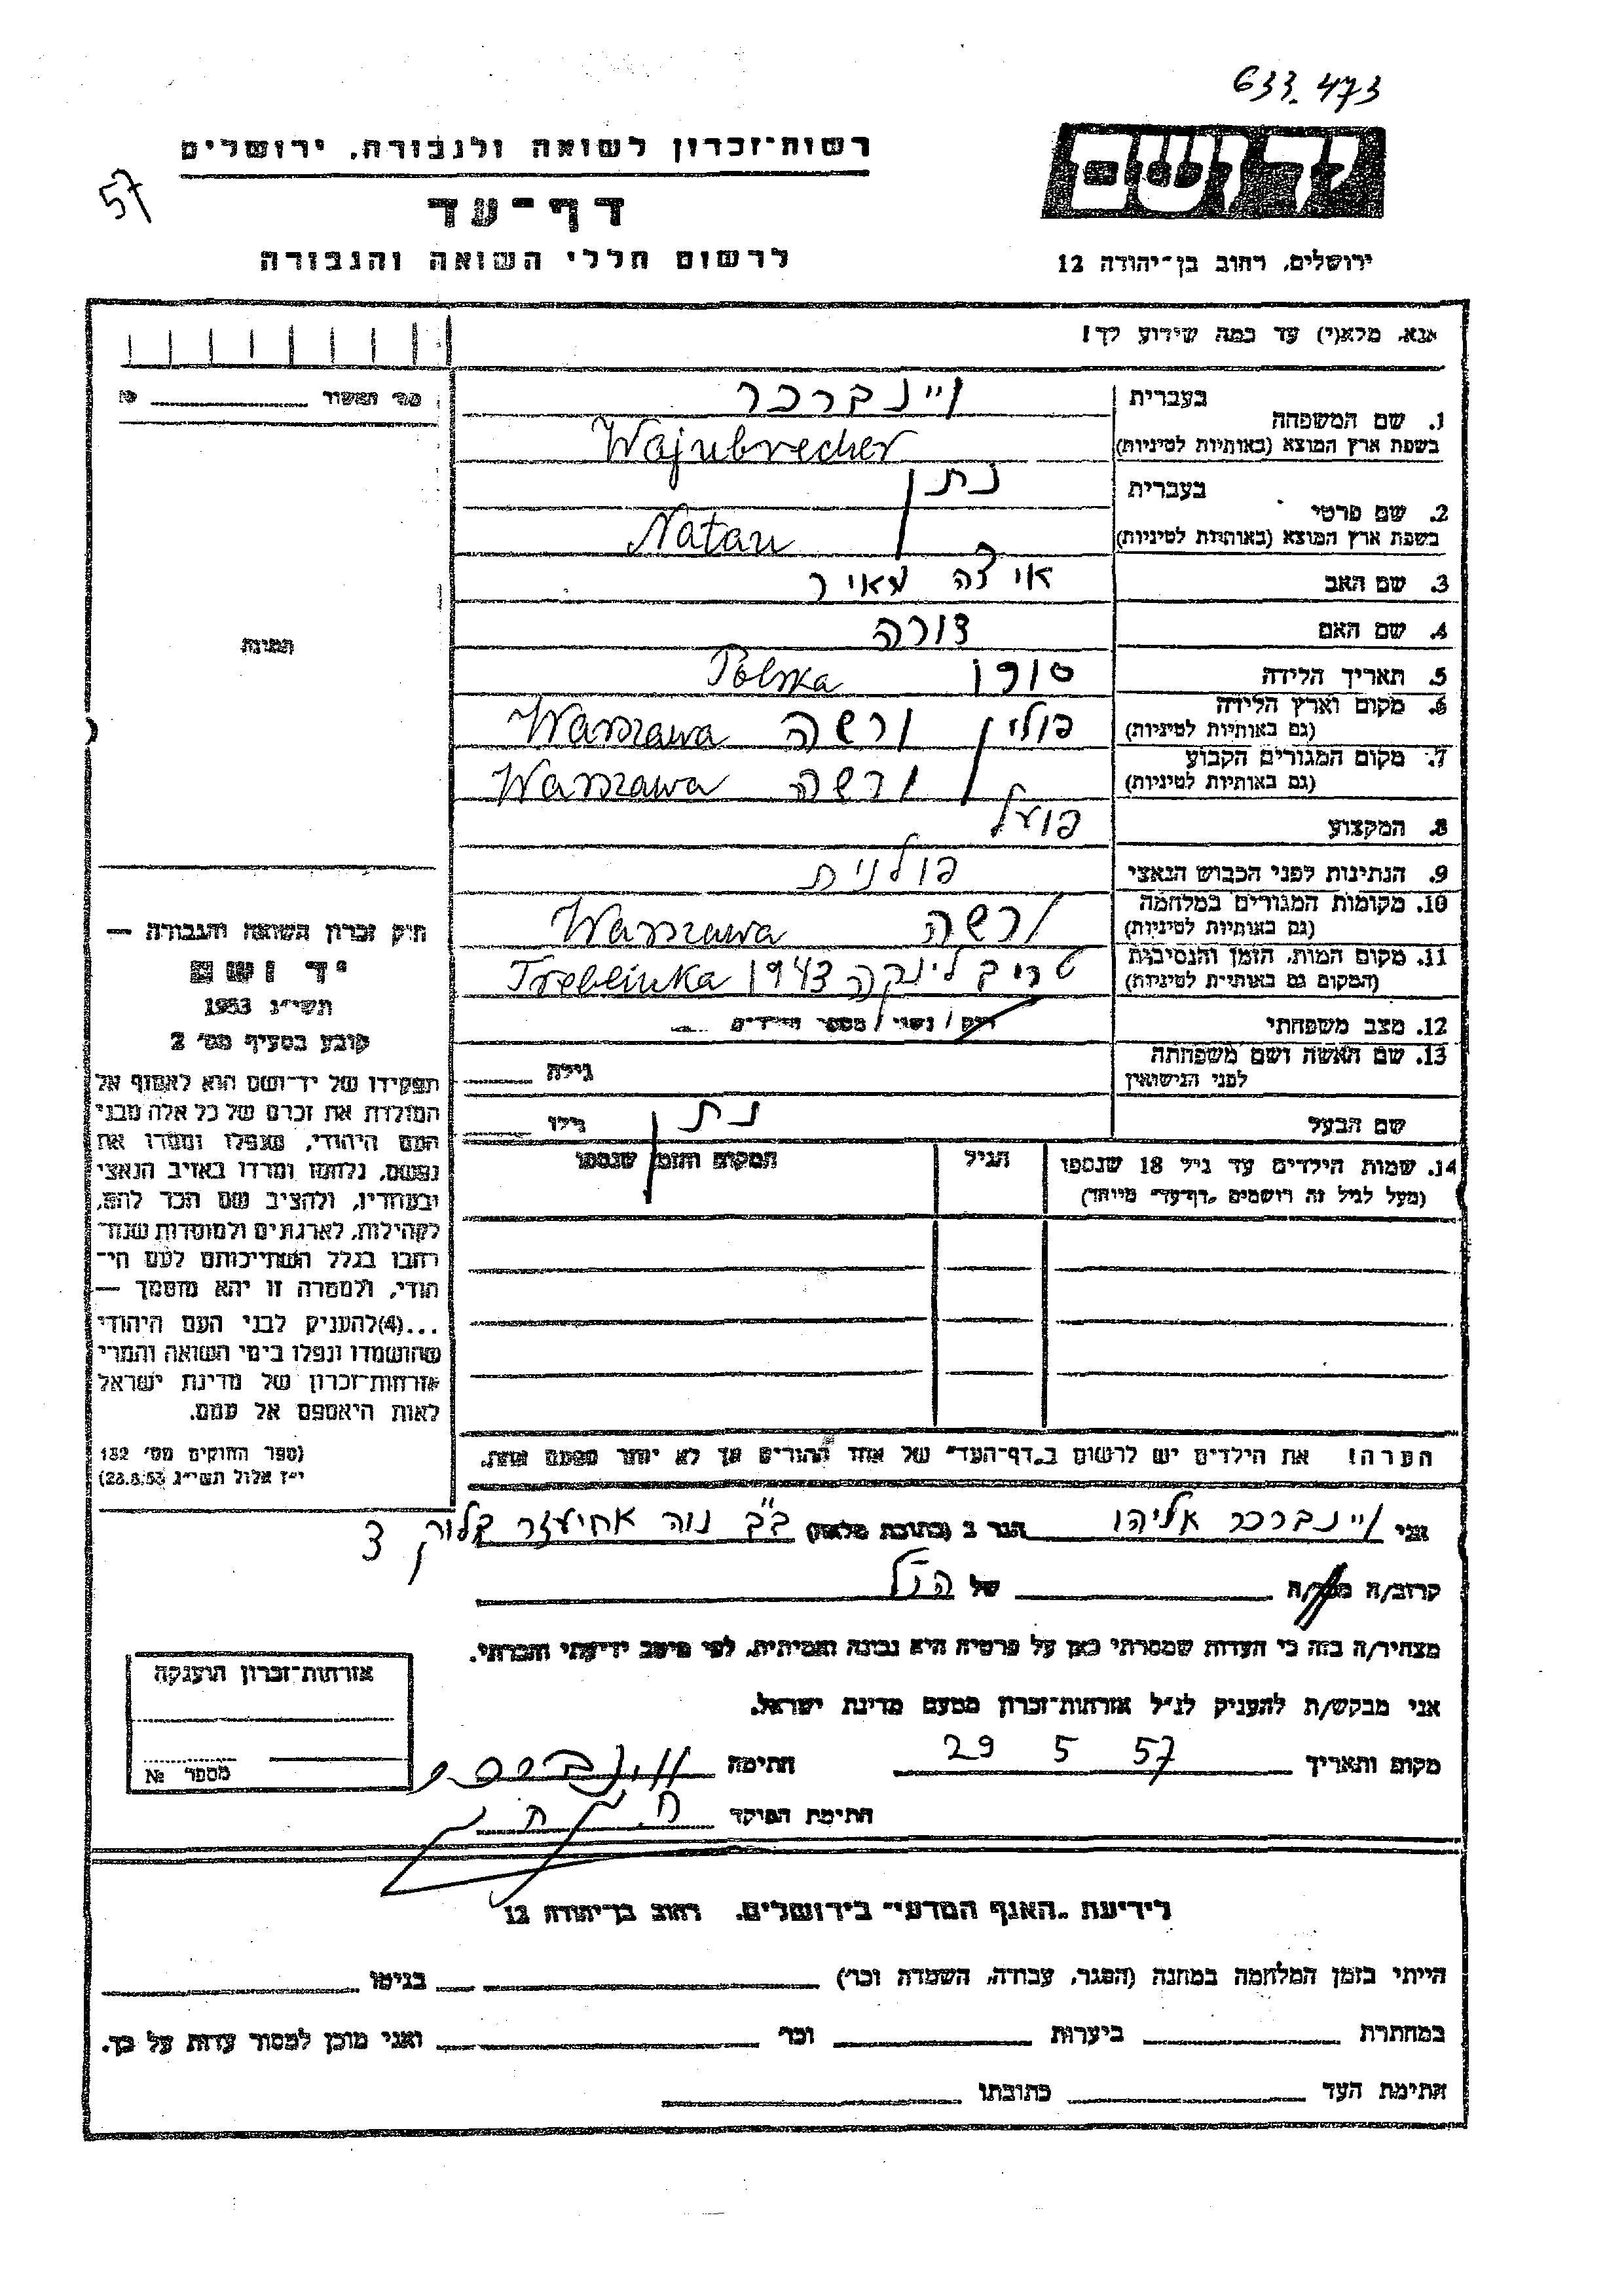 633.473
רשות־זכרון לשואה ולגבורה, ירושלים
57
דף־עד
לרשום חללי השואה והגבורה
יד ושם
ירושלים, רחוב בן־יהודה 12
אנא, מלא(י) עד כמה שידוע לך!
מס' האשור №
1. שם המשפחה
בעברית ויינברכר
בשפת ארץ המוצא (באותיות לטיניות) Wajnbrecher
2. שם פרטי
בעברית נתן
בשפת ארץ המוצא (באותיות לטיניות) Natan
3. שם האב איצה מאיר
4. שם האם
5. תאריך הלידה Polska
6. מקום וארץ הלידה (גם באותיות לטיניות) פולין ורשה Warszawa
7. מקום המגורים הקבוע (גם באותיות לטיניות) ורשה Warszawa
8. המקצוע פועל
9. הנתינות לפני הכבוש הנאצי פולנית
10. מקומות המגורים במלחמה (גם באותיות לטיניות) ורשה Warszawa
11. מקום המות, הזמן והנסיבות (המקום גם באותיות לטיניות) טריבלינקה 1943 Treblinka
12. מצב משפחתי רווק / נשוי / מספר הילדים
13. שם האשה ושם משפחתה לפני הנישואין גילה
שם הבעל נתן גילו
14. שמות הילדים עד גיל 18 שנספו (מעל לגיל זה רושמים „דף־עד” מיוחד)
הגיל
המקום והזמן שנספו
הערה! את הילדים יש לרשום ב„דף־העד” של אחד ההורים אך לא יותר מפעם אחת.
תמונה
חוק זכרון השואה והגבורה —
יד ושם
תשי״ג 1953
קובע בסעיף מס' 2
תפקידו של יד־ושם הוא לאסוף אל
המולדת את זכרם של כל אלה מבני
העם היהודי, שנפלו ומסרו את
נפשם, נלחמו ומרדו באויב הנאצי
ובעוזריו, ולהציב שם וזכר להם,
לקהילות, לארגונים ולמוסדות שנח־
רבו בגלל השתייכותם לעם הי־
הודי, ולמטרה זו יהא מוסמך —
...(4) להעניק לבני העם היהודי
שהושמדו ונפלו בימי השואה והמרי
אזרחות־זכרון של מדינת ישראל
לאות היאספם אל עמם.
(ספר החוקים מס' 132
י״ז אלול תשי״ג 28.8.53)
אני ויינברכר אליהו הגר ב (כתובת מלאה) ב״ב נוה אחיעזר בלוק 3
קרוב/ה מכר/ה של הנ״ל
מצהיר/ה בזה כי העדות שמסרתי כאן על פרטיה היא נכונה ואמיתית, לפי מיטב ידיעתי והכרתי.
אני מבקש/ת להעניק לנ״ל אזרחות־זכרון מטעם מדינת ישראל.
מקום ותאריך 29 5 57 חתימה
חתימת הפוקד
אזרחות־זכרון הוענקה
מספר №
לידיעת „האגף המדעי” בירושלים, רחוב בן־יהודה 12
הייתי בזמן המלחמה במחנה (הסגר, עבודה, השמדה וכו') בגיטו
במחתרת ביערות וכו' ואני מוכן למסור עדות על כך.
חתימת העד כתובתו